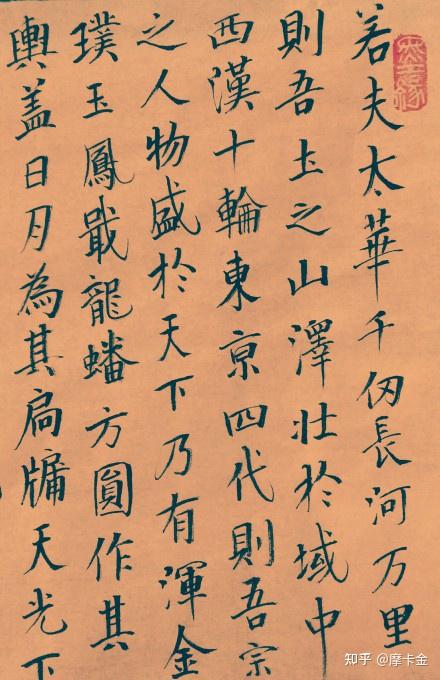 若夫太華千仞長河万里
則吾土之山澤壮於域中
西漢十輪東京四代則吾宗
之人物盛於天下乃有渾金
璞玉鳳戢龍蟠方圓作其
輿盖日月為其扃牖天光下
知乎 @摩卡金